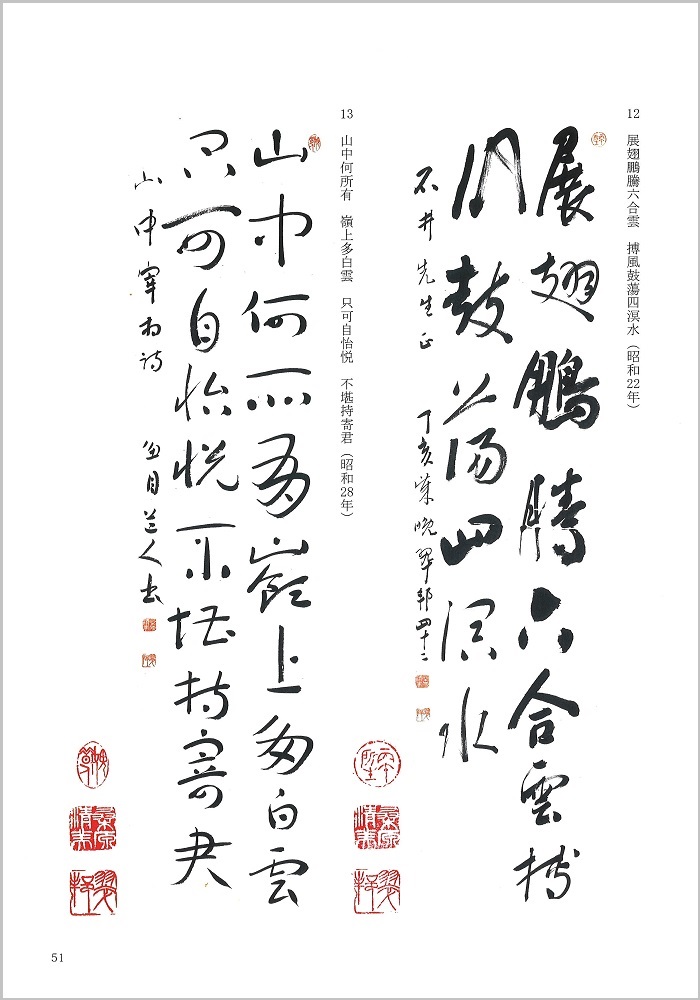 12 展翅鵬騰六合雲 搏風鼓蕩四溟水（昭和22年）
展翅鵬騰六合雲搏
風鼓蕩四溟水
石井先生正 丁亥歳晩翠邨四十二
13 山中何所有 嶺上多白雲 只可自怡悦 不堪持寄君（昭和28年）
山中何所有嶺上多白雲
只可自怡悦不堪持寄君
山中宰相詩 人書
桑原
翠邨
桑原
翠邨
51